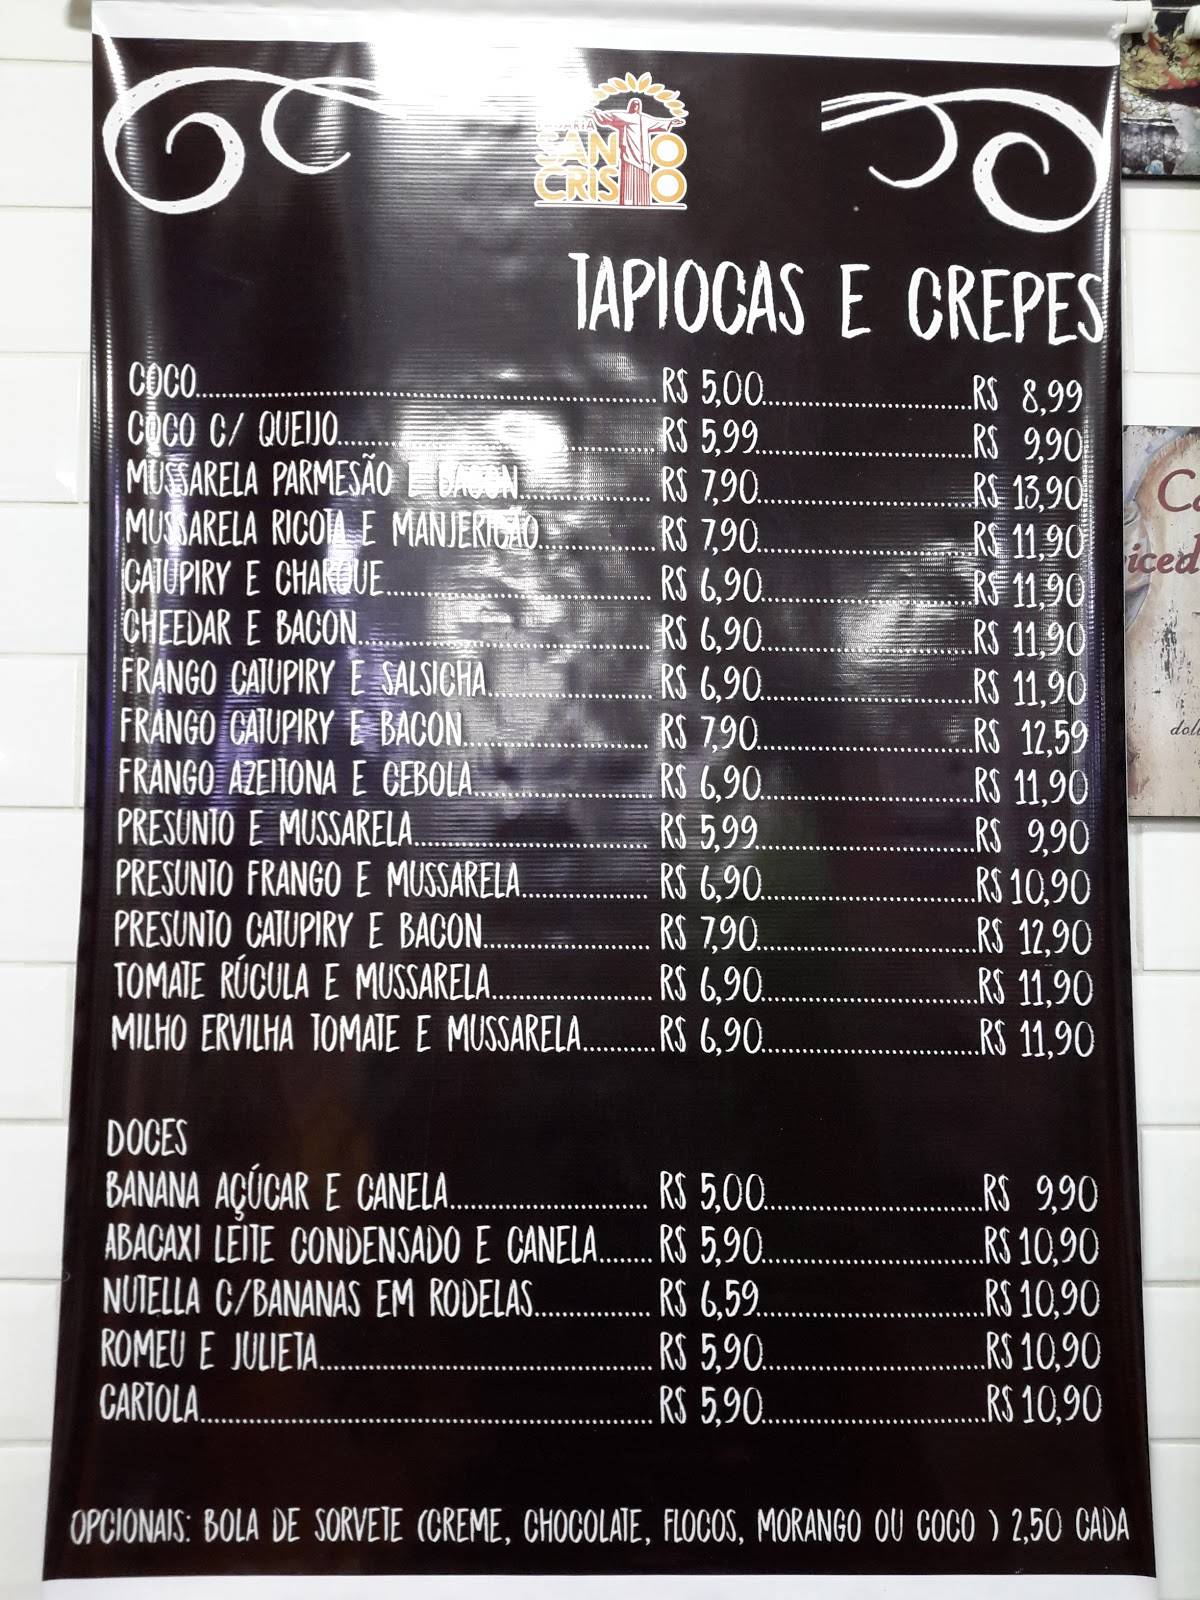 SANTO
CRISTO
TAPIOCAS E CREPES
COCO R$ 5,00 R$ 8,99
COCO C/ QUEIJO R$ 5,99 R$ 9,90
MUSSARELA PARMESÃO E BACON R$ 7,90 R$ 13,90
MUSSARELA RICOTA E MANJERICÃO R$ 7,90 R$ 11,90
CATUPIRY E CHARQUE R$ 6,90 R$ 11,90
CHEEDAR E BACON R$ 6,90 R$ 11,90
FRANGO CATUPIRY E SALSICHA R$ 6,90 R$ 11,90
FRANGO CATUPIRY E BACON R$ 7,90 R$ 12,59
FRANGO AZEITONA E CEBOLA R$ 6,90 R$ 11,90
PRESUNTO E MUSSARELA R$ 5,99 R$ 9,90
PRESUNTO FRANGO E MUSSARELA R$ 6,90 R$ 10,90
PRESUNTO CATUPIRY E BACON R$ 7,90 R$ 12,90
TOMATE RÚCULA E MUSSARELA R$ 6,90 R$ 11,90
MILHO ERVILHA TOMATE E MUSSARELA R$ 6,90 R$ 11,90
DOCES
BANANA AÇÚCAR E CANELA R$ 5,00 R$ 9,90
ABACAXI LEITE CONDENSADO E CANELA R$ 5,90 R$ 10,90
NUTELLA C/BANANAS EM RODELAS R$ 6,59 R$ 10,90
ROMEU E JULIETA R$ 5,90 R$ 10,90
CARTOLA R$ 5,90 R$ 10,90
OPCIONAIS: BOLA DE SORVETE (CREME, CHOCOLATE, FLOCOS, MORANGO OU COCO ) 2,50 CADA
iced